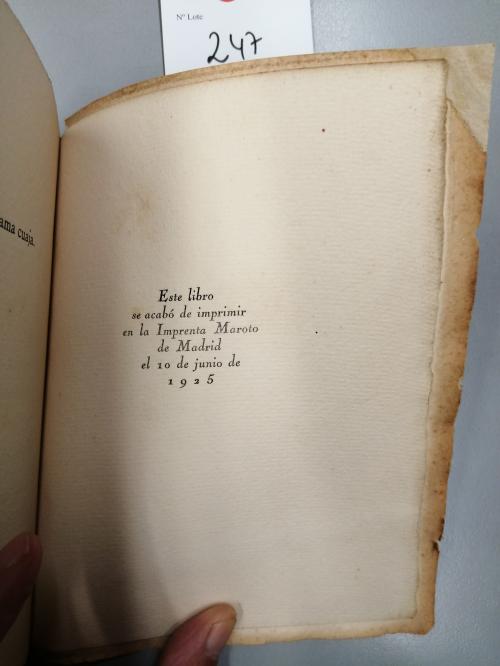 Nº Lote
247
ama cuaja.
Este libro
se acabó de imprimir
en la Imprenta Maroto
de Madrid
el 10 de junio de
1925